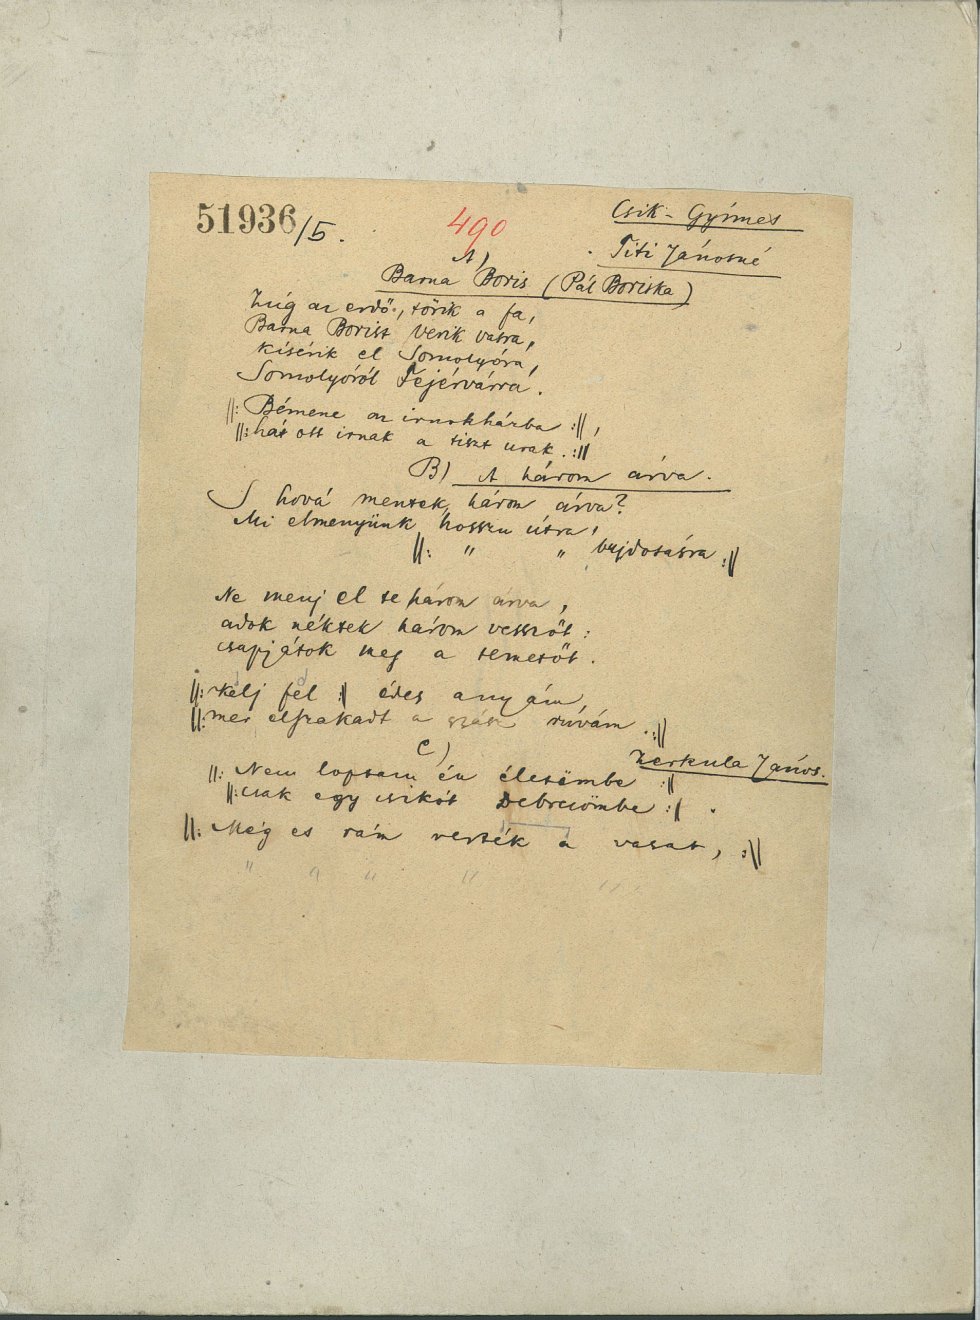 51936/5.
490
Csik-Gyimes
Titi Jánosné
A)
Barna Boris (Pál Boriska)
Zúg az erdő, törik a fa,
Barna Borist verik vasra,
kísérik el Somolyóra,
Somolyóról Fejérvárra.
||: Bémene az irnokházba :||,
||: hát ott irnak a tiszt urak. :||
B) A három árva.
S hová mentek, három árva?
Mi elmenyünk hosszu útra,
||: " " bujdosásra :||
Ne menj el te három árva,
adok néktek három vesszőt:
csapjátok meg a temetőt.
||: Kelj fel :|| édes anyám,
||: mer elszakadt a gyász ruvám. :||
C)
Zerkula János.
||: Nem loptam én életömbe :||
||: csak egy csikót Debreczömbe :|| .
||: Még es rám verték a vasat, :||
" " " " " "